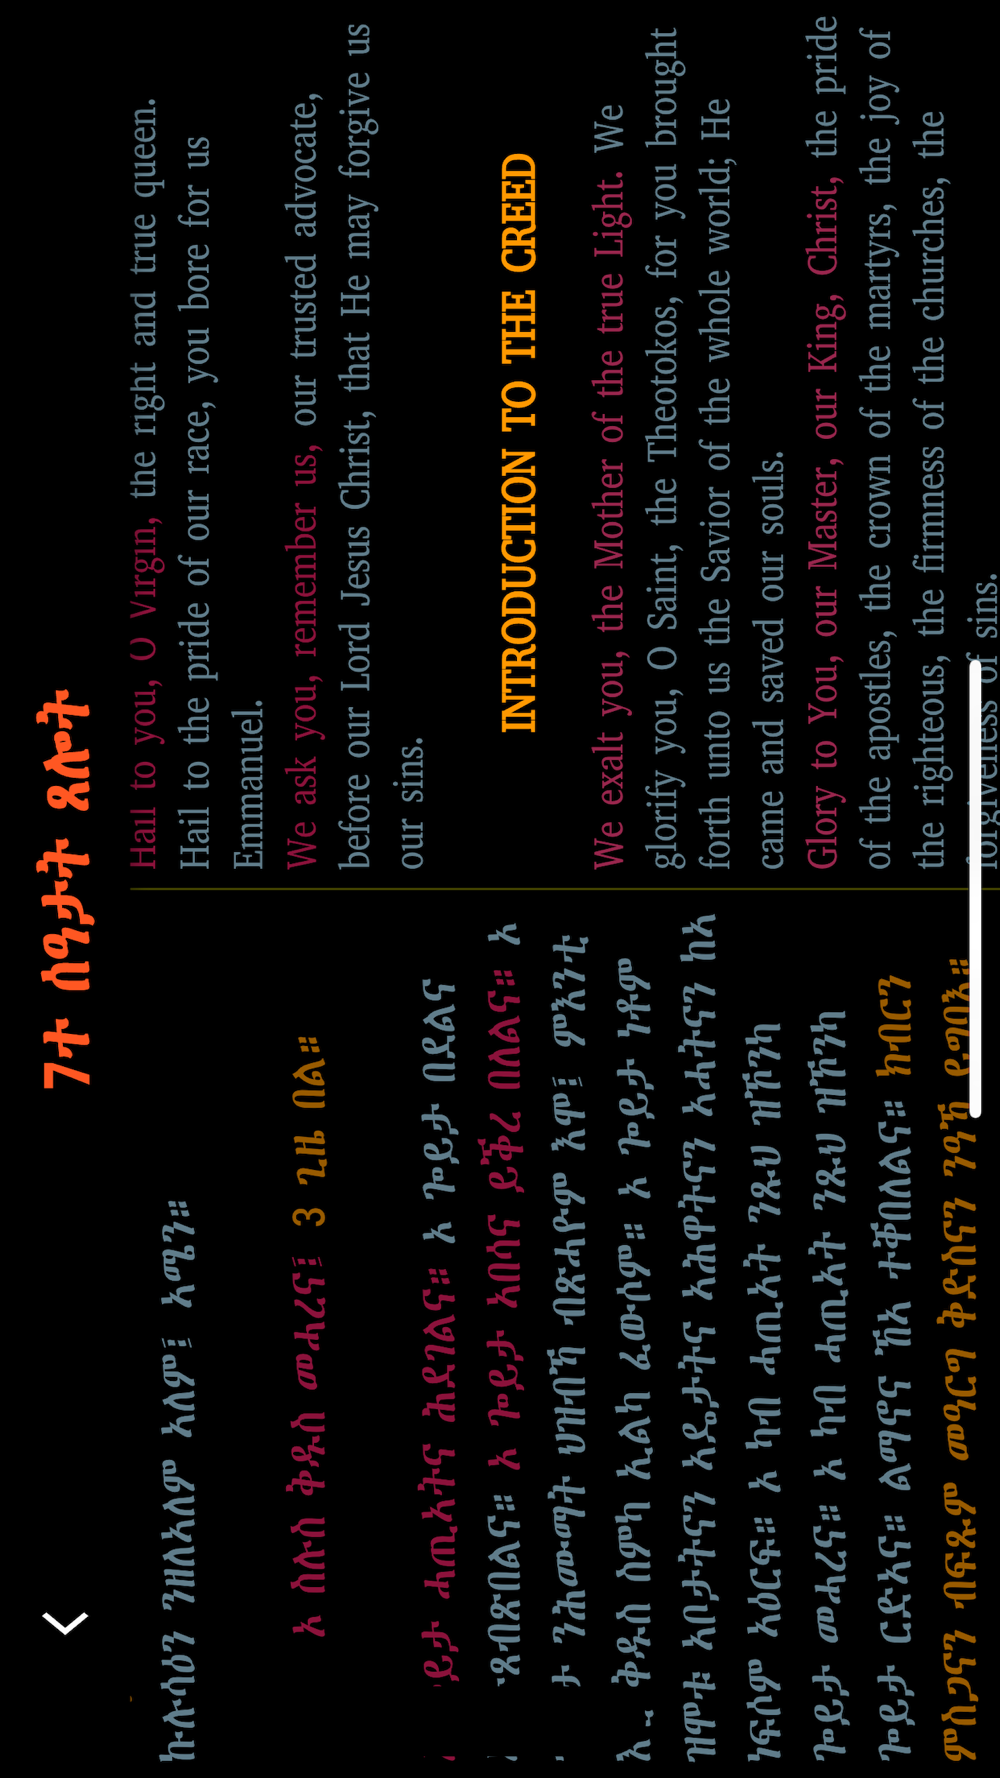 7ተ ሰዓታት ጸሎት
ኩሉሳዕን ንዘለኣለም ኣለም፤ ኣሜን።
ኦ ስሉስ ቅዱስ መሓረና፤ 3 ጊዜ በል።
ሓጢኣትና ሕደገልና። ኦ ጐይታ በደልና
ኦ ጐይታ ኣበሳና ይቕረ በለልና። ኦ
ንሕመማት ህዝብኻ ብጽሓዮም እሞ፤ ምእንቲ
ቅዱስ ስምካ ኢልካ ፈውሶም። ኦ ጐይታ ነቶም
ዝሞቱ ኣቦታትናን ኣዴታትና ኣሕዋትናን ኣሓትናን ከኣ
ነፍሶም ኣዕርፍ። ኦ ካብ ሓጢኣት ንጹህ ዝኾንካ
ጐይታ መሓረና። ኦ ካብ ሓጢኣት ንጹህ ዝኾንካ
ጐይታ ርድኣና። ልማኖና ኸኣ ተቐበለልና። ክብርን
ምስጋናን ብፍጹም መዓርግ ቅድስናን ንዓኻ ይግባእ።
Hail to you, O Virgin, the right and true queen.
Hail to the pride of our race, you bore for us
Emmanuel.
We ask you, remember us, our trusted advocate,
before our Lord Jesus Christ, that He may forgive us
our sins.
INTRODUCTION TO THE CREED
We exalt you, the Mother of the true Light. We
glorify you, O Saint, the Theotokos, for you brought
forth unto us the Savior of the whole world; He
came and saved our souls.
Glory to You, our Master, our King, Christ, the pride
of the apostles, the crown of the martyrs, the joy of
the righteous, the firmness of the churches, the
forgiveness of sins.